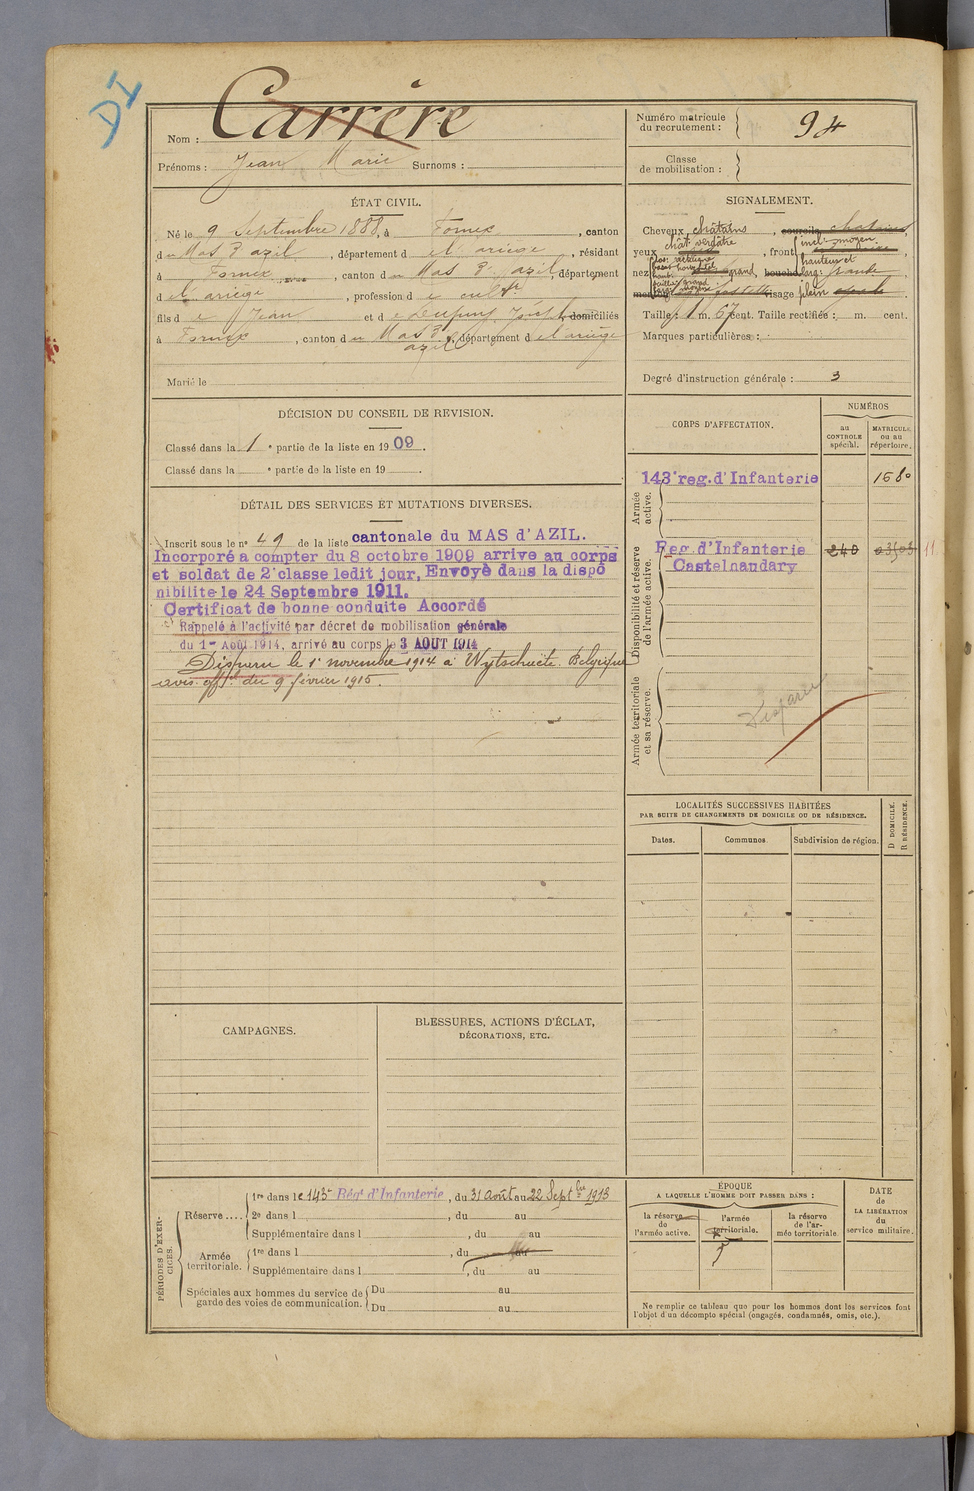 DI
Nom : Carrère
Prénoms : Jean Marie Surnoms :
Numéro matricule
du recrutement : 94
Classe
de mobilisation :
ÉTAT CIVIL.
Né le 9 Septembre 1888, à Fornex, canton
du Mas d'azil, département de l'ariège, résidant
à Fornex, canton du Mas d'azil, département
de l'ariège, profession de cultr
fils de Jean et de Dupuy domiciliés
à Fornex, canton du Mas d'azil, département de l'ariège
Marié le
SIGNALEMENT.
Cheveux châtains, sourcils chatains,
yeux chât verdâtre, front incl: moyen
hauteur et
larg: grande
nez grand, bouche
visage plein
Taille : 1 m. 67 cent. Taille rectifiée : m. cent.
Marques particulières :
Degré d'instruction générale : 3
DÉCISION DU CONSEIL DE REVISION.
Classé dans la 1e partie de la liste en 1909.
Classé dans la e partie de la liste en 19 .
DÉTAIL DES SERVICES ET MUTATIONS DIVERSES.
Inscrit sous le n° 49 de la liste cantonale du MAS d'AZIL.
Incorporé a compter du 8 octobre 1909 arrive au corps
et soldat de 2e classe ledit jour. Envoyé dans la dispo
nibilite le 24 Septembre 1911.
Certificat de bonne conduite Accordé
Rappelé à l'activité par décret de mobilisation générale
du 1er Août 1914, arrivé au corps le 3 AOUT 1914
Disparu le 1r novembre 1914 à Wytschuete. Belgique
avis offel du 9 février 1915.
CORPS D'AFFECTATION.
NUMÉROS
au
CONTROLE
spécial.
MATRICULE
ou au
répertoire.
Armée
active.
143e reg. d'Infanterie 1680
Disponibilité et réserve
de l'armée active.
Reg d'Infanterie 240 11
Castelnaudary
Armée territoriale
et sa réserve.
Disparu
LOCALITÉS SUCCESSIVES HABITÉES
PAR SUITE DE CHANGEMENTS DE DOMICILE OU DE RÉSIDENCE.
Dates.
Communes.
Subdivision de région.
D DOMICILE.
R RÉSIDENCE.
CAMPAGNES.
BLESSURES, ACTIONS D'ÉCLAT,
DÉCORATIONS, ETC.
PÉRIODES D'EXER-
CICES.
Réserve ....
1re dans le 143e Régt d'Infanterie, du 31 Août au 22 Septbre 1913
2e dans l , du au
Supplémentaire dans l , du au
Armée
territoriale.
1re dans l , du au
Supplémentaire dans l , du au
Spéciales aux hommes du service de
garde des voies de communication.
Du au
Du au
ÉPOQUE
A LAQUELLE L'HOMME DOIT PASSER DANS :
la réserve
de
l'armée active.
l'armée
territoriale.
la réserve
de l'ar-
mée territoriale.
DATE
de
LA LIBÉRATION
du
service militaire.
Ne remplir ce tableau que pour les hommes dont les services font
l'objet d'un décompte spécial (engagés, condamnés, omis, etc.).